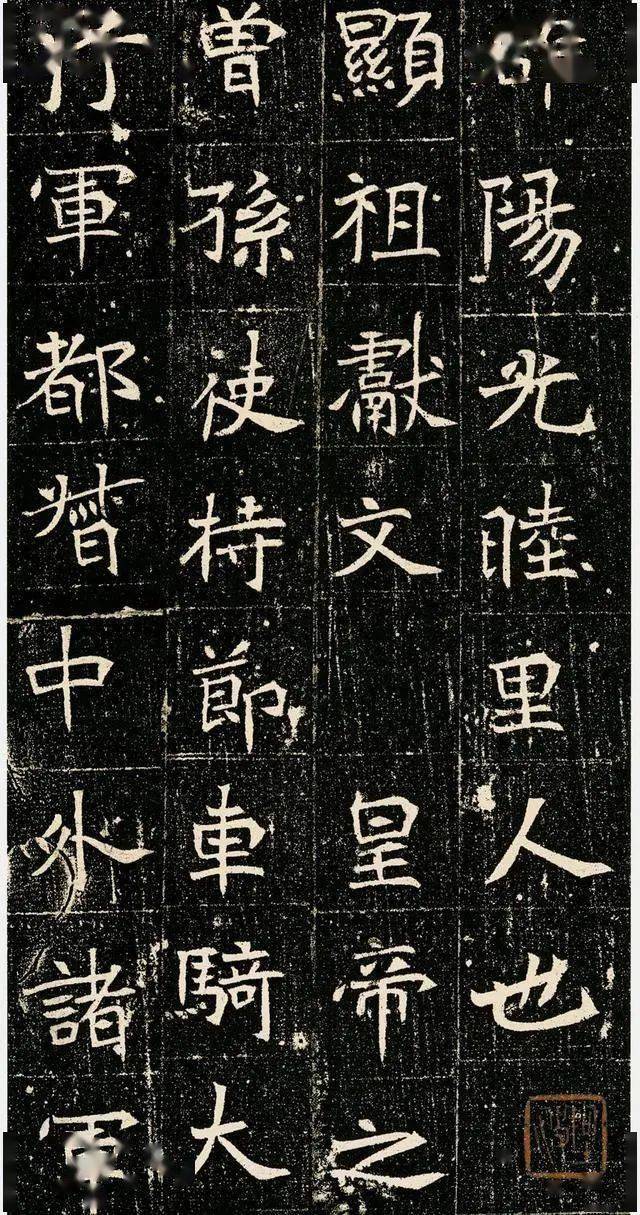 陽光睦里人也
顯祖獻文 皇帝之
曾孫使持節車騎大
軍都督中外諸軍